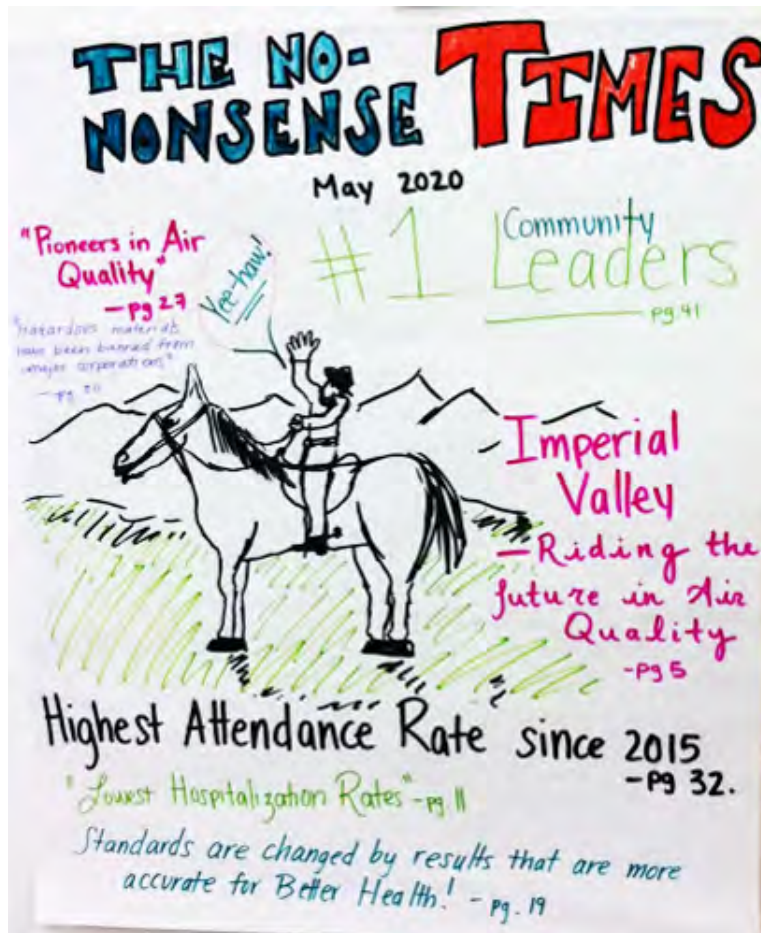 THE NO-
NONSENSE TIMES
May 2020
"Pioneers in Air
Quality"
-pg 27
"Hazardous materials
have been banned from
major corporations"
- pg
Yee-haw!
#1 Community
Leaders
pg.41
Imperial
Valley
-Riding the
future in Air
Quality
-pg 5
Highest Attendance Rate since 2015
-pg 32.
"Lowest Hospitalization Rates" -pg. 11
Standards are changed by results that are more
accurate for Better Health! - pg. 19